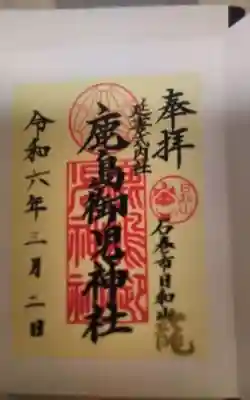 奉拝
石巻市日和山
延喜式内社
鹿島御児神社
令和六年三月二日